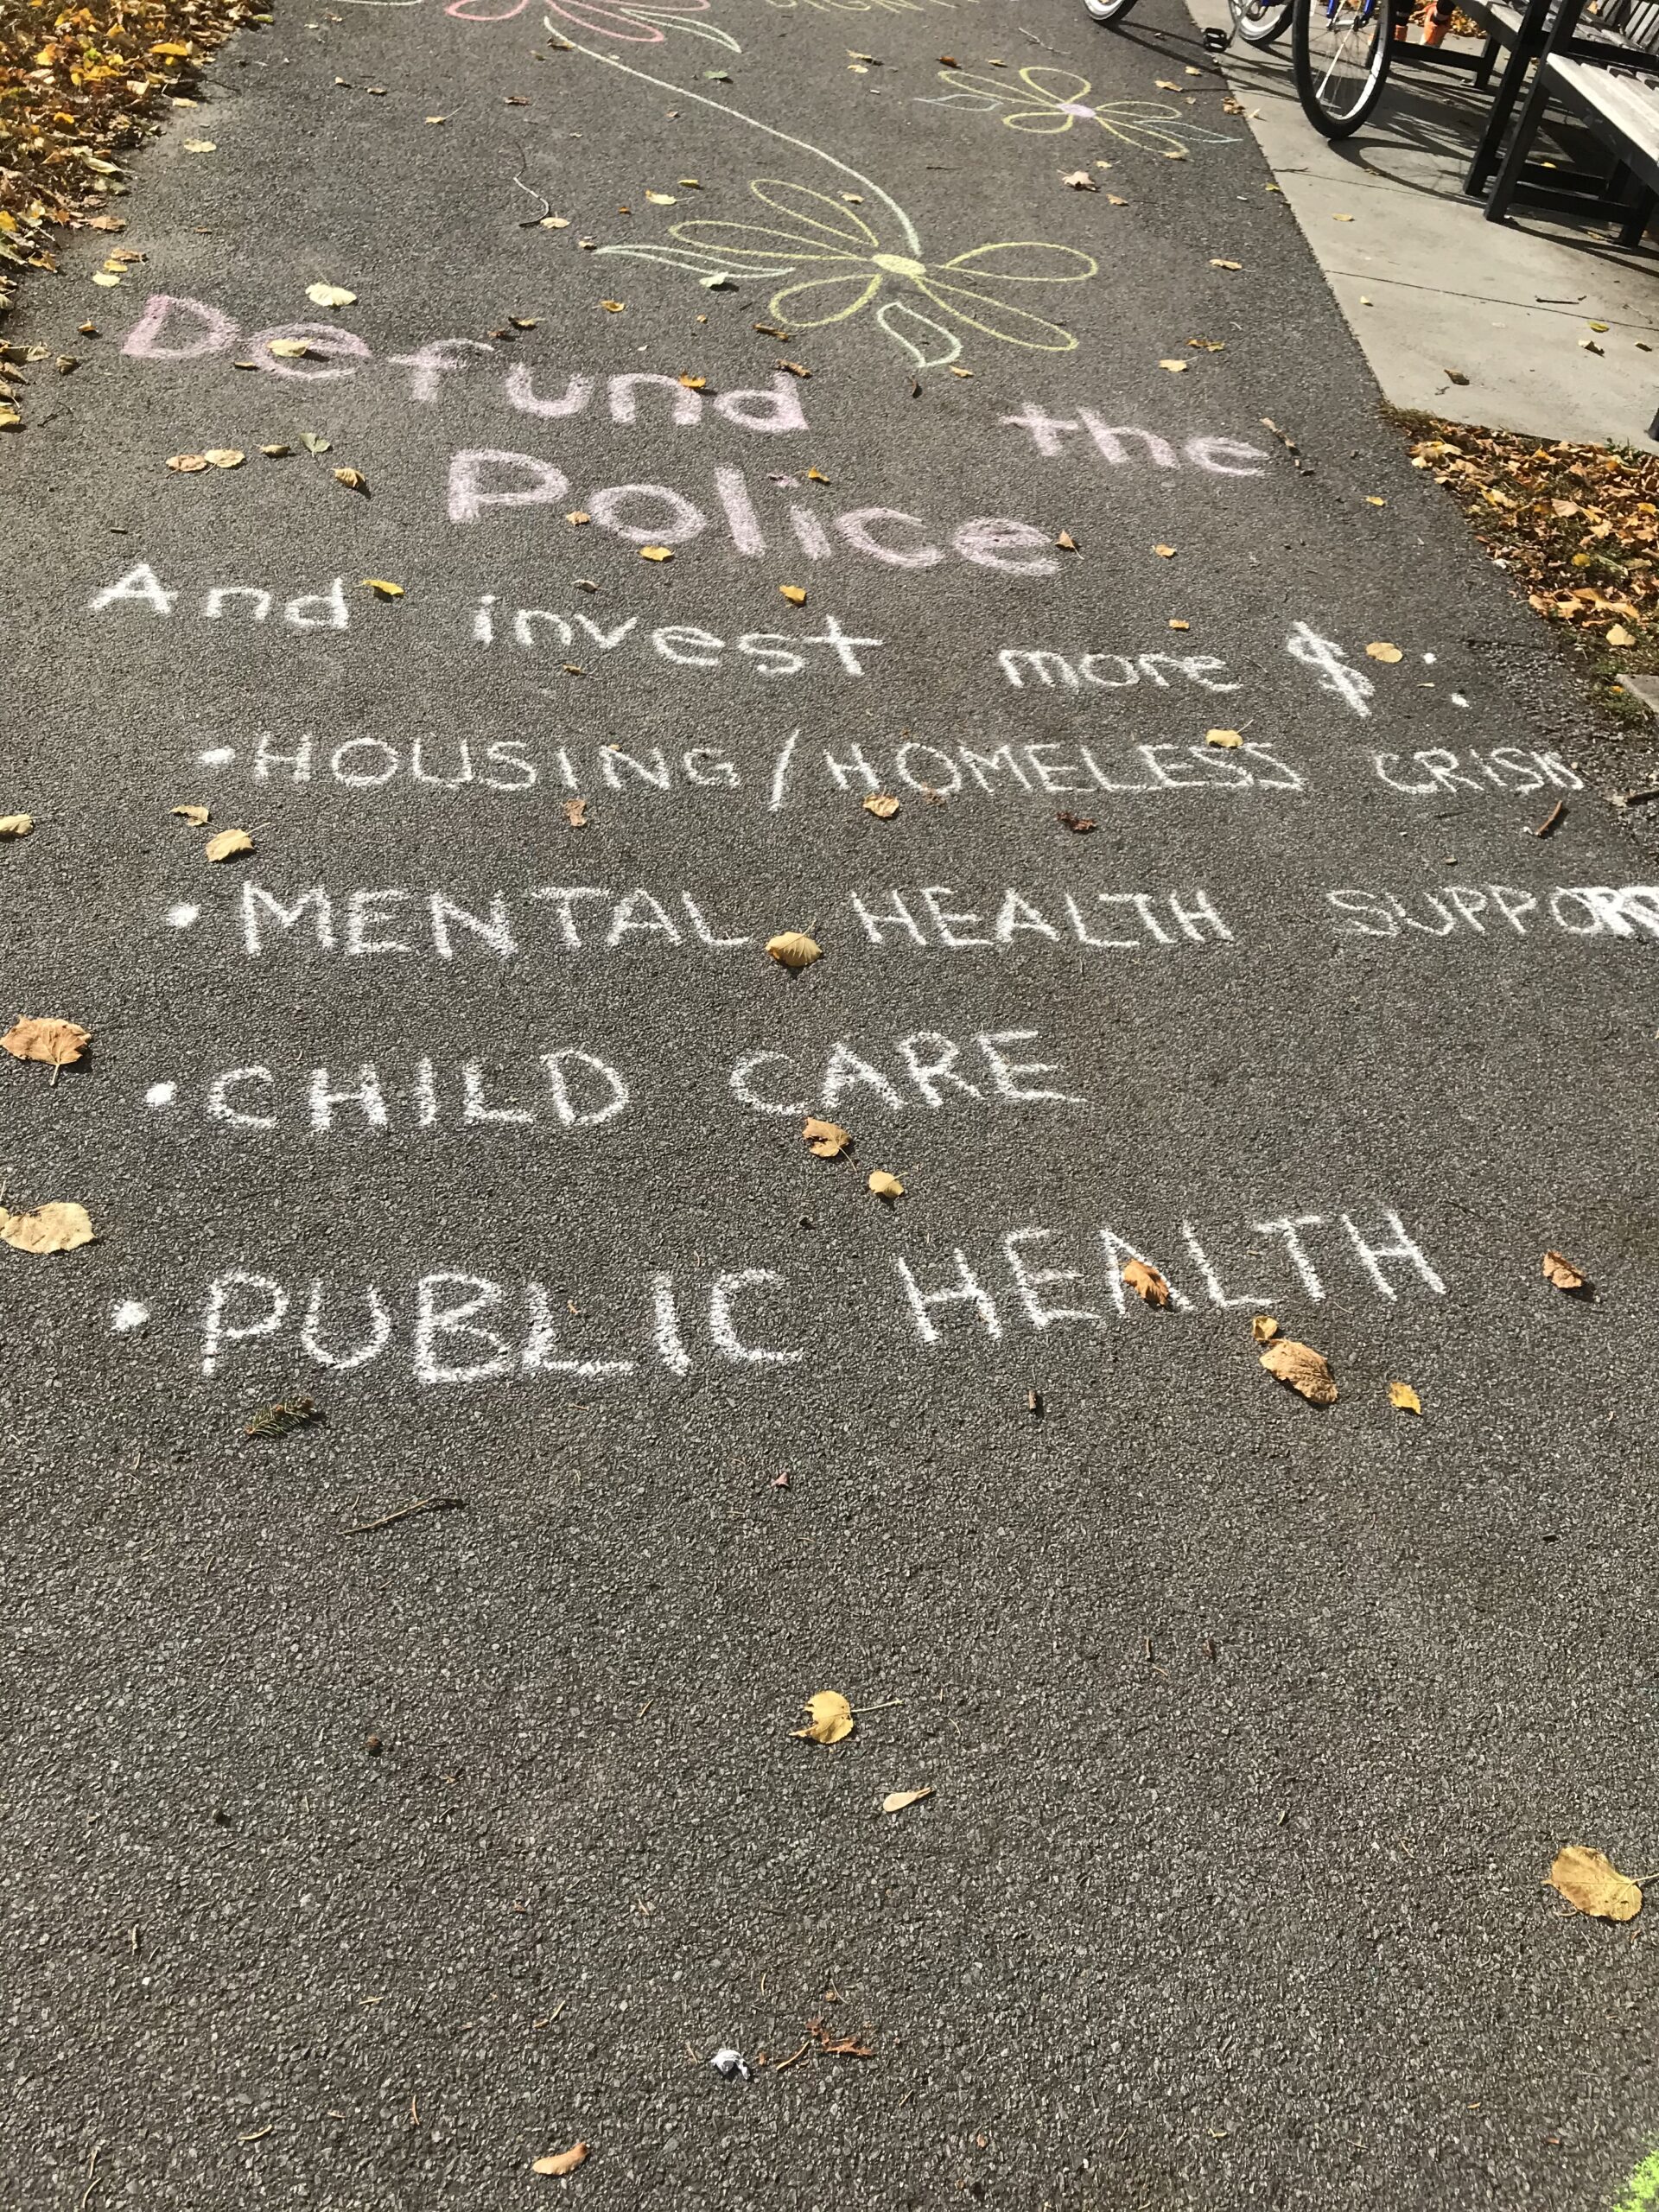 Defund the
Police
And invest more $:
• HOUSING/HOMELESS CRISIS
• MENTAL HEALTH SUPPORT
• CHILD CARE
• PUBLIC HEALTH